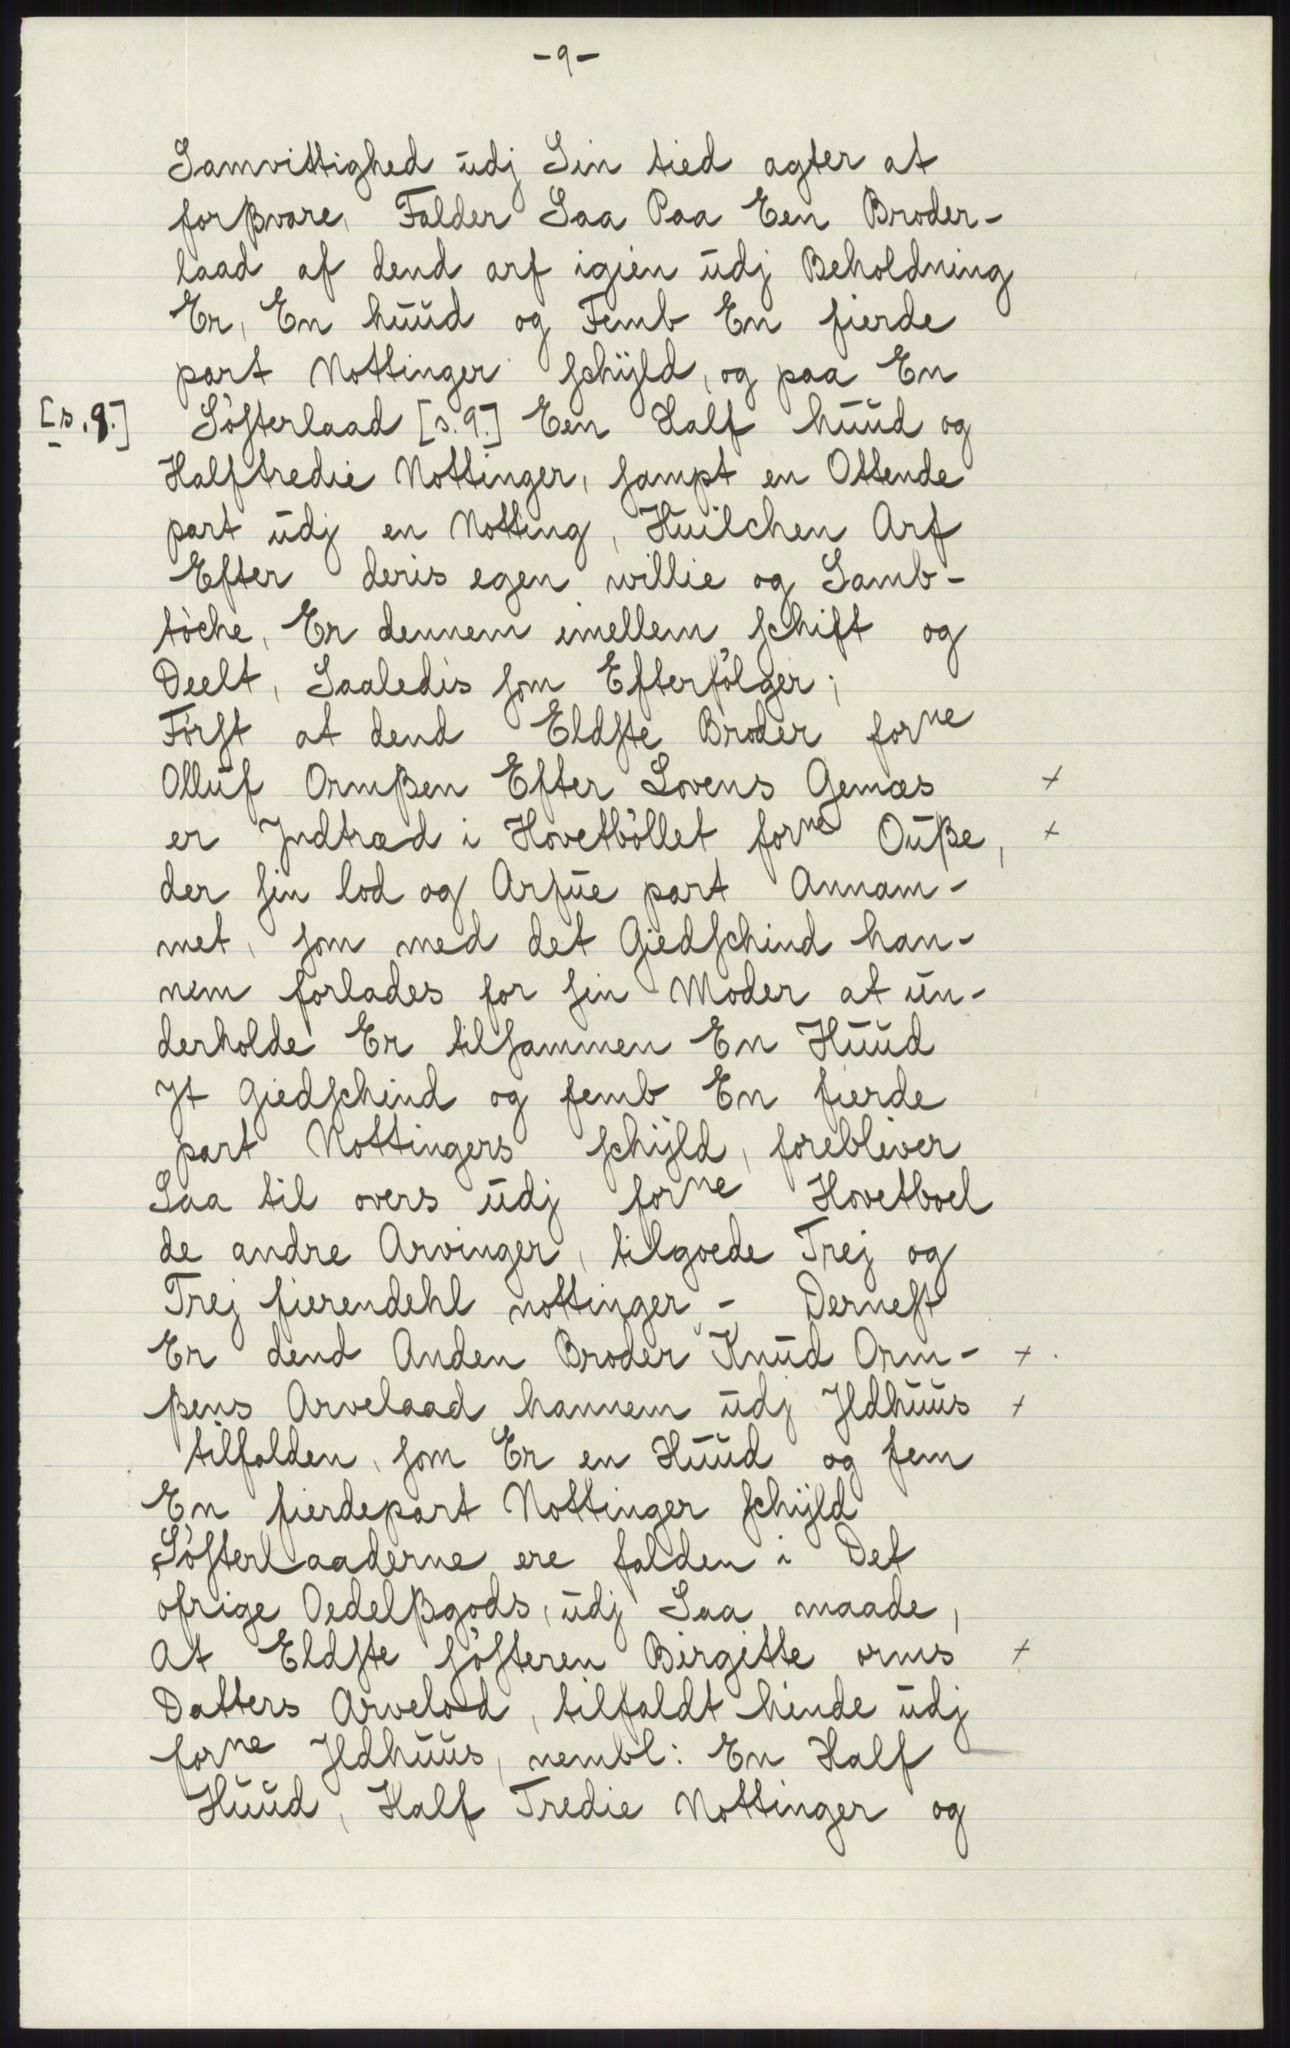 -9-
Samvittighed udj Sin tied agter at
forßvare, Falder Saa Paa Een Broder-
laad af dend arf igien udj Beholdning
Er, En huud og Femb En fierde
part Nottinger schÿld, og paa En
[s.9.] Søsterlaad [s.9.] Een Half huud og
Halftredie Nottinger, sampt en Ottende
part udj en Notting, Huilchen Arf
Efter deris egen willie og Samb-
tøche, Er dennem imellem schift og
Deelt, Saaledis som Efterfølger;
Først at dend Eldste Broder forne
Olluf Ormßen Efter Lovens Gemæs +
er Indtræd i Hovetbøllet forne Ouße, +
der sin lod og Arfue part Annam-
met, som med det Giedschind han-
nem forlades for sin Moder at un-
derholde Er tilsammen En Huud
It Giedschind og femb En fierde
part Nottingers schÿld, forebliver
Saa til overs udj forne Hovetboel
de andre Arvinger, tilgoede Trej og
Trej fierendehl nottinger - Dernest
Er dend Anden Broder Knud Orm- +
ßens Arvelaad hannem udj Ildhuus +
tilfalden, som Er en Huud og fem
En fierdepart Nottinger schÿld
Søsterlaaderne ere falden i Det
øfrige Oedelßgods, udj Saa maade,
At Eldste søsteren Birgitte orms +
Datters Arvelod, tilfaldt hinde udj
forne Ildhuus, nembl: En Half
Huud, Half Tredie Nottinger og